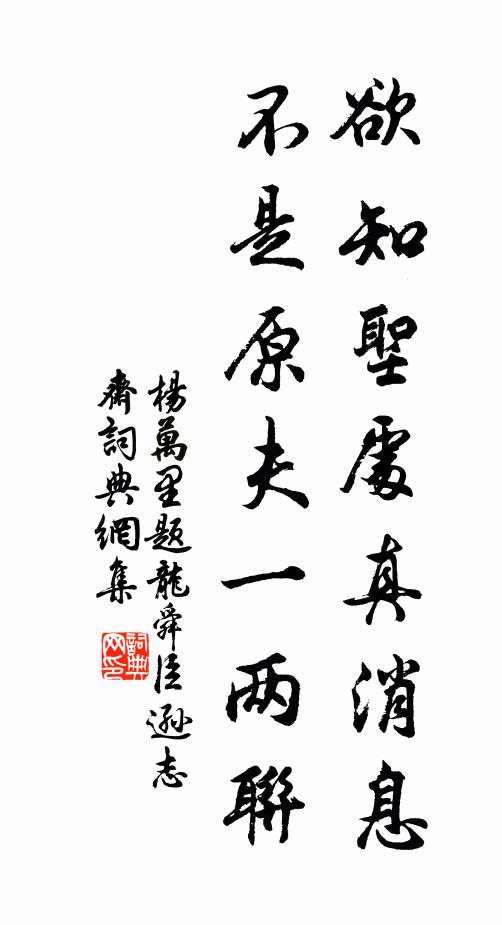 欲知聖處真消息
不是原夫一兩聯
楊萬里題龍舜臣遜志
齋詞典網集
詞典網印